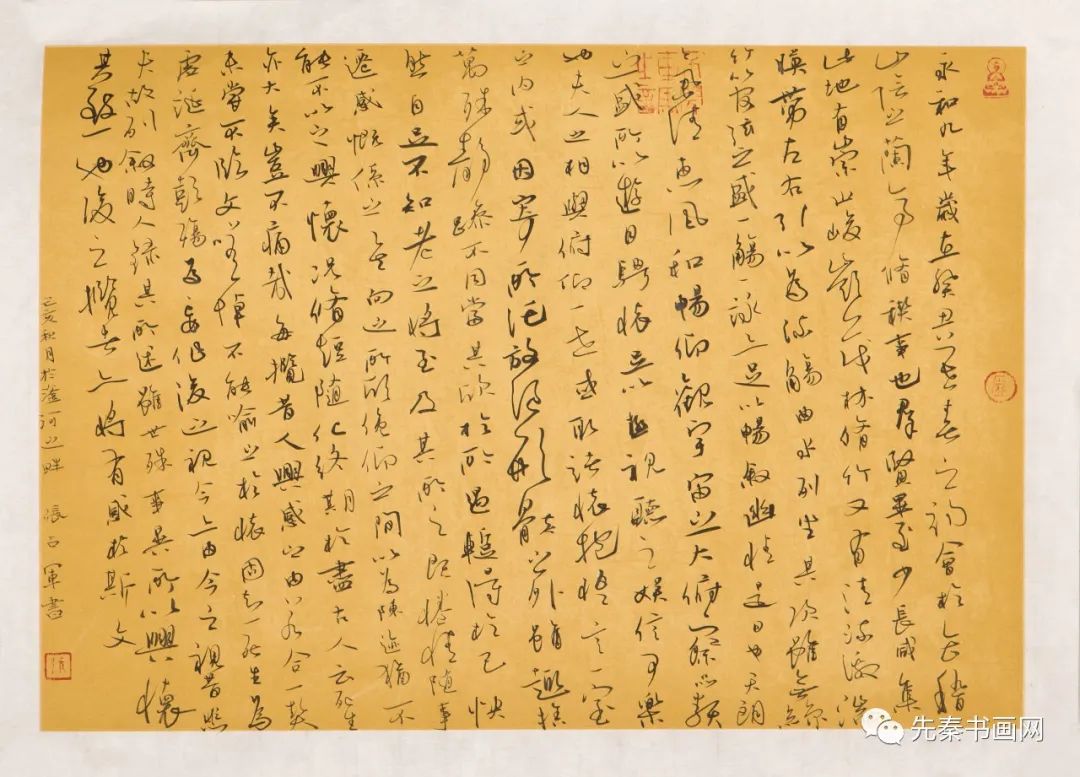 永和九年歲在癸丑暮春之初會於會稽
山陰之蘭亭脩禊事也羣賢畢至少長咸集
此地有崇山峻嶺茂林脩竹又有清流激湍
暎帶左右引以為流觴曲水列坐其次雖無絲
竹管弦之盛一觴一詠亦足以暢敘幽情是日也天朗
氣清惠風和暢仰觀宇宙之大俯察品類
之盛所以遊目騁懷足以極視聽之娛信可樂
也夫人之相與俯仰一世或取諸懷抱悟言一室
之內或因寄所託放浪形骸之外雖趣捨
萬殊靜躁不同當其欣於所遇暫得於己快
然自足不知老之將至及其所之既惓情隨事
遷感慨係之矣向之所欣俛仰之間以為陳迹猶不
能不以之興懷況脩短隨化終期於盡古人云死生
亦大矣豈不痛哉每攬昔人興感之由若合一契
未嘗不臨文嗟悼不能喻之於懷固知一死生為
虛誕齊彭殤為妄作後之視今亦由今之視昔悲
夫故列敘時人錄其所述雖世殊事異所以興懷
其致一也後之攬者亦將有感於斯文
己亥秋月於滏河之畔 張占軍書
先秦书画网